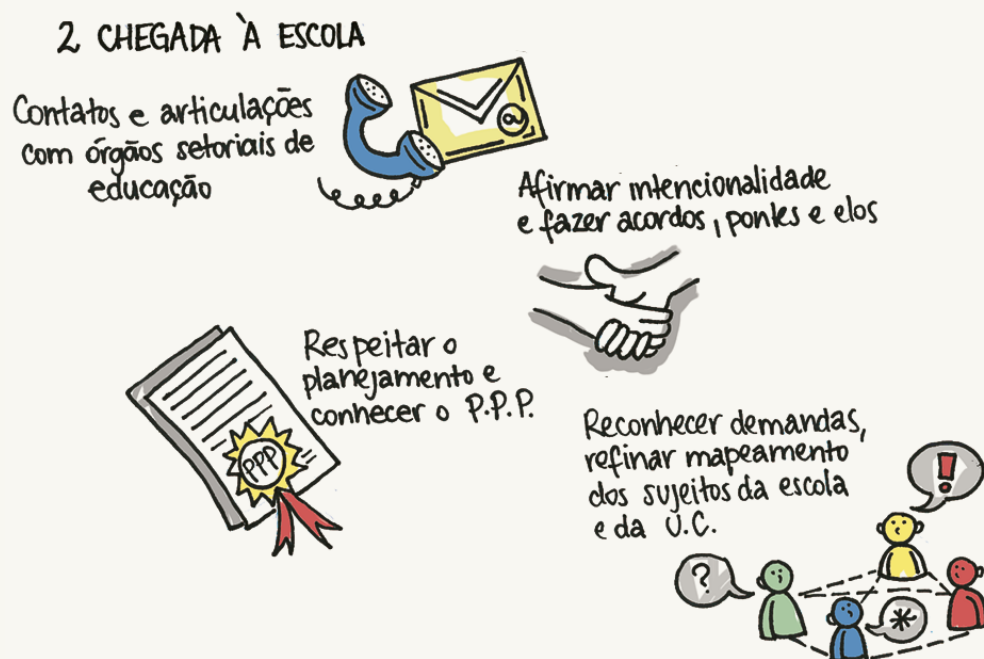 2 CHEGADA À ESCOLA
Contatos e articulações
com órgãos setoriais de
educação
@
Afirmar intencionalidade
e fazer acordos, pontes e elos
Respeitar o
planejamento e
conhecer o P.P.P.
PPP
Reconhecer demandas,
refinar mapeamento
dos sujeitos da escola
e da U.C.
!
?
*